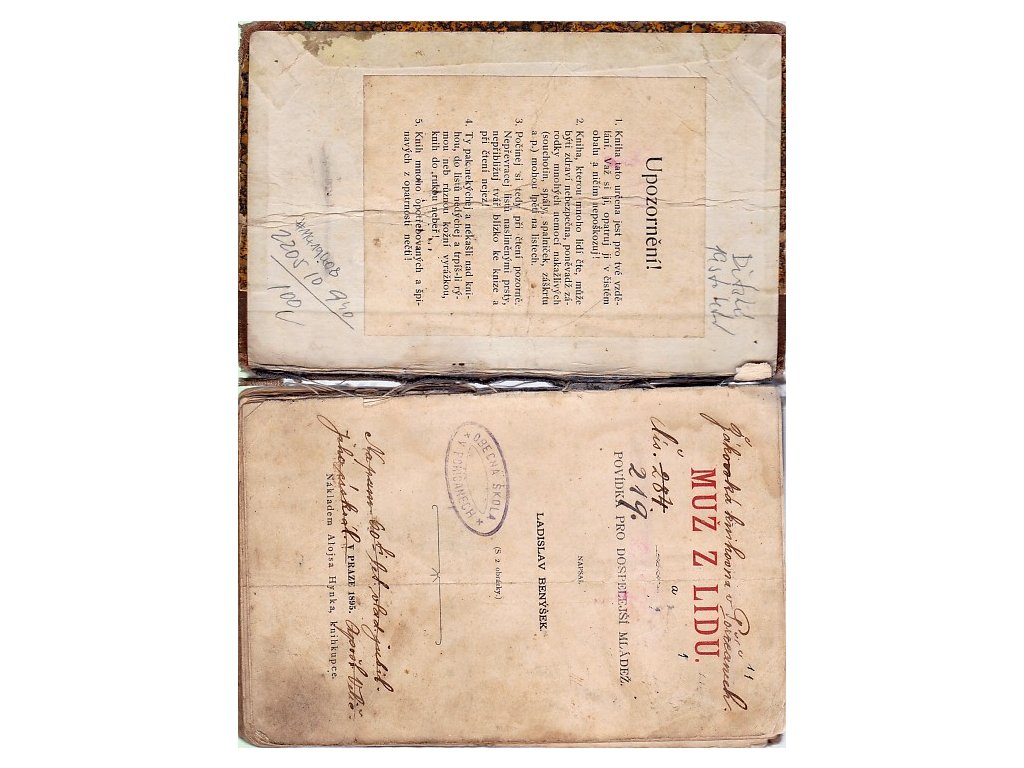 Upozornění!
1. Kniha tato určena jest pro tvé vzdě-
lání. Važ si jí, opatruj ji v čistém
obalu a ničím nepoškozuj!
2. Kniha, kterou mnoho lidí čte, může
býti zdraví nebezpečna, poněvadž zá-
rodky mnohých nemocí nakažlivých
(souchotin, spály, spalniček, záškrtu
a p.) mohou lpěti na listech.
3. Počínej si tedy při čtení pozorně.
Nepřevracej listů naslíněnými prsty,
nepřibližuj tvář blízko ke knize a
při čtení nejez!
4. Ty pak nekýchej a nekašli nad kni-
hou, do listů nedýchej a trpíš-li rý-
mou neb různou kožní vyrážkou,
knih do rukou neber!
5. Knih mnoho opotřebovaných a špi-
navých z opatrnosti nečti!
2205/10
100
Žákovská knihovna v
MUŽ Z LIDU.
Čís. 284.
219.
POVÍDKA PRO DOSPĚLEJŠÍ MLÁDEŽ.
NAPSAL
LADISLAV BENÝŠEK.
(S 2 obrázky.)
* OBECNÁ ŠKOLA *
V PORIČANECH
V PRAZE 1895.
Nákladem Alojsa Hynka, knihkupce.